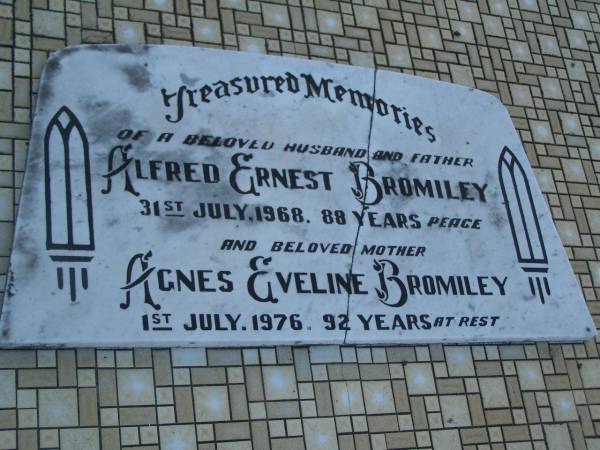 Treasured Memories
OF A BELOVED HUSBAND AND FATHER
ALFRED ERNEST BROMILEY
31ST JULY, 1968. 88 YEARS PEACE
AND BELOVED MOTHER
AGNES EVELINE BROMILEY
1ST JULY. 1976. 92 YEARS AT REST